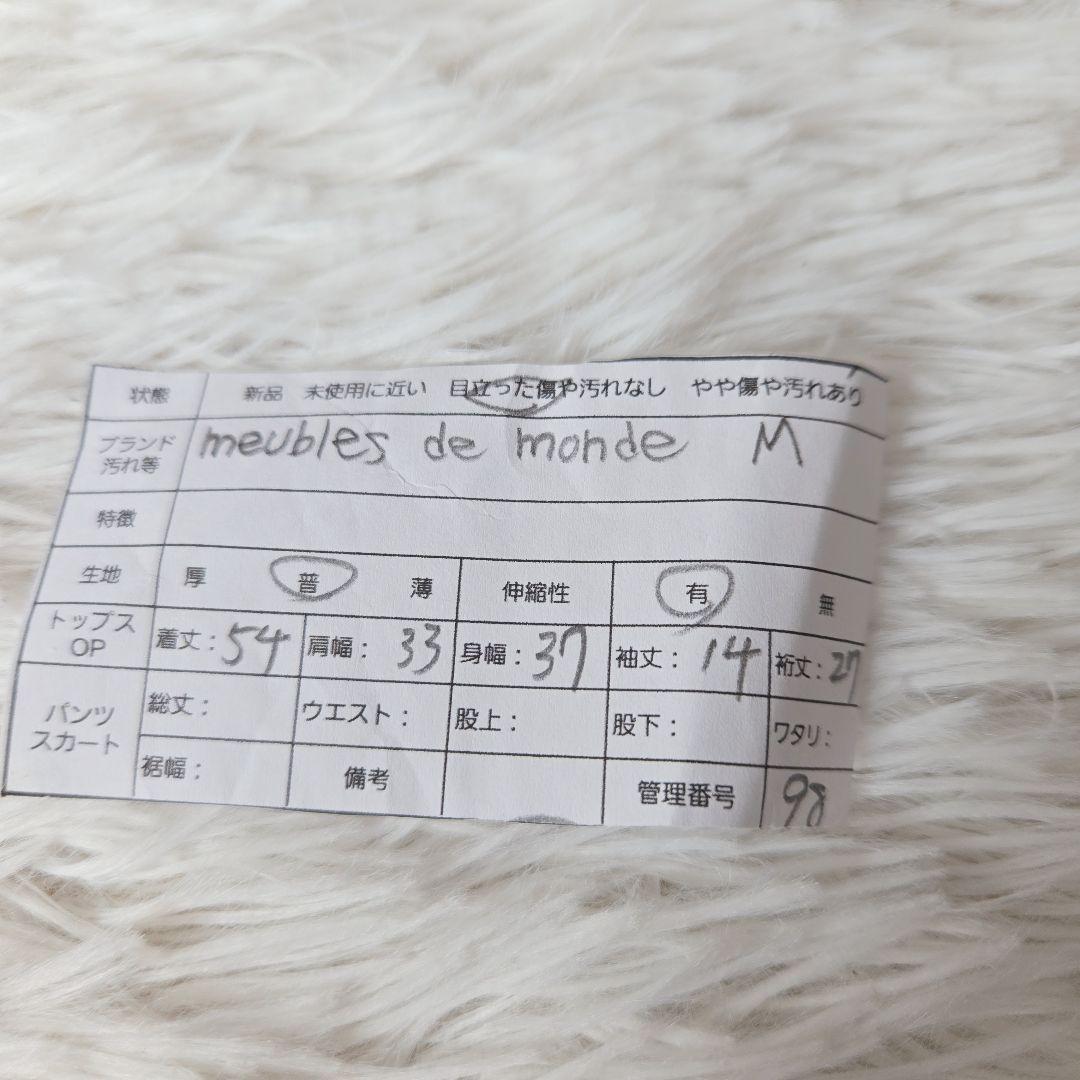 状態 新品 未使用に近い 目立った傷や汚れなし やや傷や汚れあり
ブランド 汚れ等 meubles de monde M
特徴
生地 厚 普 薄 伸縮性 有 無
トップス OP 着丈:54 肩幅:33 身幅:37 袖丈:14 裄丈:27
パンツ スカート 総丈: ウエスト: 股上: 股下: ワタリ:
裾幅: 備考 管理番号 98